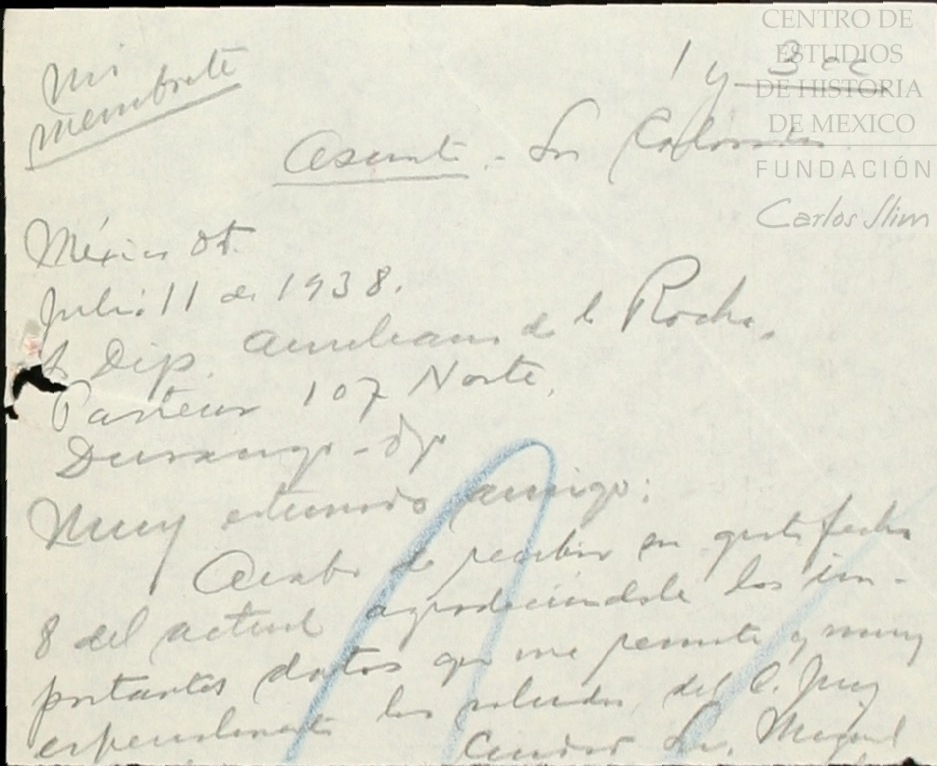 CENTRO DE
ESTUDIOS
DE HISTORIA
DE MEXICO
FUNDACIÓN
Carlos Slim
Mi
membrete
1 y 3 cc
Asunto - Su Calvario
México DF.
Julio 11 de 1938.
Dip. Aureliano de la Rocha.
Pasteur 107 Norte.
Durango - Dgo
Muy estimado amigo:
Acabo de recibir su grata fecha
8 del actual agradeciéndole los im-
portantes datos que me remite y muy
especialmente los saludos del C. Juez
Sr. Miguel